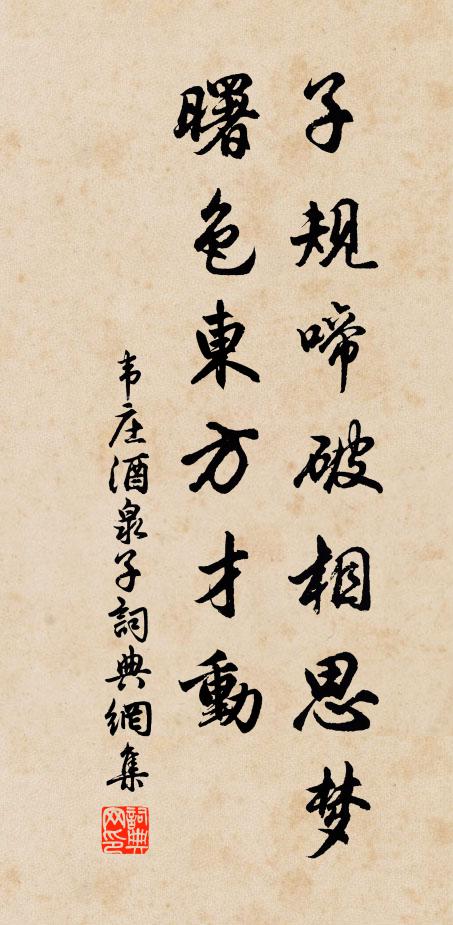 子规啼破相思梦
曙色東方才動
韦庄酒泉子詞典網集
詞典网印